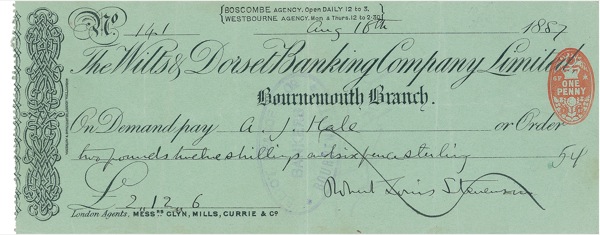 BOSCOMBE AGENCY. Open DAILY 12 to 3.
WESTBOURNE AGENCY. Mon & Thurs. 12 to 2-30
No 141 Aug 18th 1887
The Wilts & Dorset Banking Company Limited.
ONE PENNY
Bournemouth Branch.
On Demand pay A. J. Hale or Order
two pounds twelve shillings and sixpence sterling
£ 2,,12,,6 Robert Louis Stevenson
London Agents, MESSRS GLYN, MILLS, CURRIE & Co